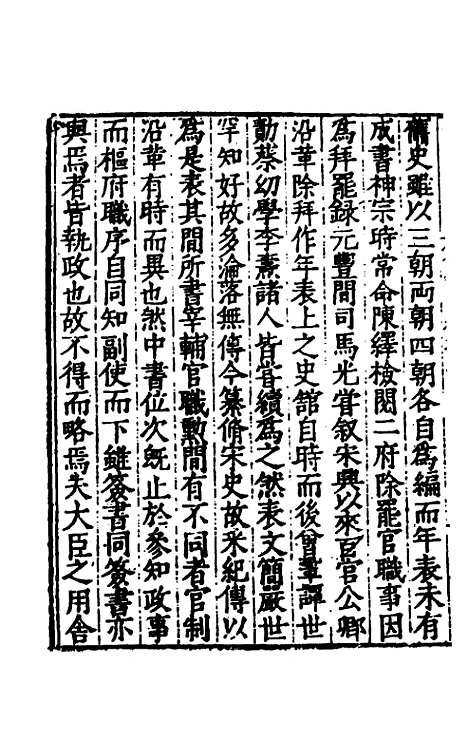 舊史雖以三朝兩朝四朝各自爲編而年表未有
成書神宗時常命陳繹檢閱二府除罷官職事因
爲拜罷録元豐間司馬光嘗叙宋興以來百官公卿
沿革除拜作年表上之史館自時而後曾鞏譚世
勣蔡幼學李燾諸人皆嘗續爲之然表文簡嚴世
罕知好故多淪落無傳今纂脩宋史故采紀傳以
爲是表其間所書宰輔官職勲間有不同者官制
沿革有時而異也然中書位次旣止於參知政事
而樞府職序自同知副使而下雖簽書同簽書亦
與焉者皆執政也故不得而略焉夫大臣之用舎